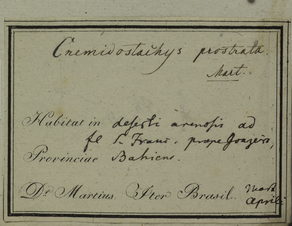 Cnemidostachys prostrata
Mart.
Habitat in deserti arenosis ad
fl. S. Franc. prope Joazeiro,
Provinciae Bahiens.
Dr. Martius Iter Brasil. Mart.
April